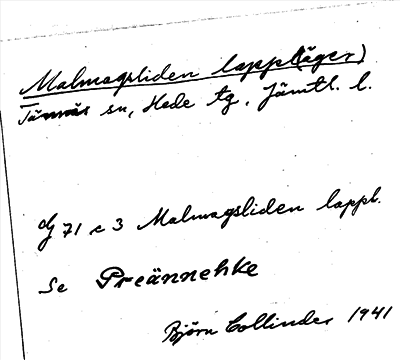 Malmagsliden lappl(äger)
Tännäs sn, Hede tg. Jämtl. l.
dJ 71 c 3 Malmagsliden lappl.
Se Preännehke
Björn Collinder 1941